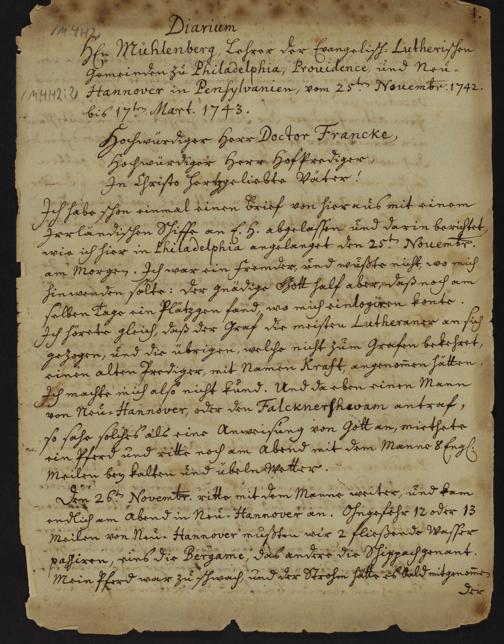 1.
Diarium
HEn Mühlenberg, Lehrer der Evangelisch-Lutherischen
Gemeinden zu Philadelphia, Providence, und Neu-
Hannover in Pensylvanien, vom 25ten Novembr. 1742.
bis 17ten Mart. 1743.
Hochwürdiger Herr Doctor Francke,
Hochwürdiger Herr Hofprediger,
In Christo hertzgeliebte Väter!
Ich habe schon einmal einen Brief von hieraus mit einem
Irrländischen Schiffe an E. H. abgelassen und darin berichtet,
wie ich hier in Philadelphia angelanget den 25ten Novembr.
am Morgen. Ich war ein Fremder, und wußte nicht wo mich
hinwenden solte: der gnädige Gott half aber, daß noch am
selben Tage ein Plätzgen fand, wo mich einlogiren konte.
Ich hörete gleich, daß der Graf die meisten Lutheraner an sich
gezogen, und die übrigen, welche nicht zum Grafen bekehret,
einen alten Prediger, mit Namen Kraft, angenommen hätten.
Ich machte mich also nicht kund. Und da eben einen Mann
von Neu-Hannover, oder den Falcknershwam antraf,
so sahe solches als eine Anweisung von Gott an, miethete
ein Pferd und ritte noch am Abend mit dem Manne 8 Engl.
Meilen bey kalten und übeln Wetter.
Den 26ten Novembr. ritte mit dem Manne weiter, und kam
endlich am Abend in Neu-Hannover an. Ohngefähr 12 oder 13
Meilen von Neu-Hannover mußten wir 2 fließende Wasser
passiren, eins die Bergame, das andere die Shippach genant.
Mein Pferd war zu schwach und der Strohm hätte es bald mitgenommen
der